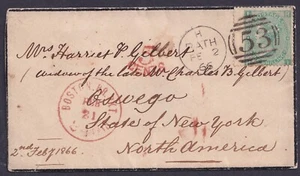 Mrs Harriet P. Gilbert
(widow of the late Mr Charles B. Gilbert)
Oswego
State of New York
North America.
2nd Feby 1866.
BATH
FE 2
66
53
BOSTON
21